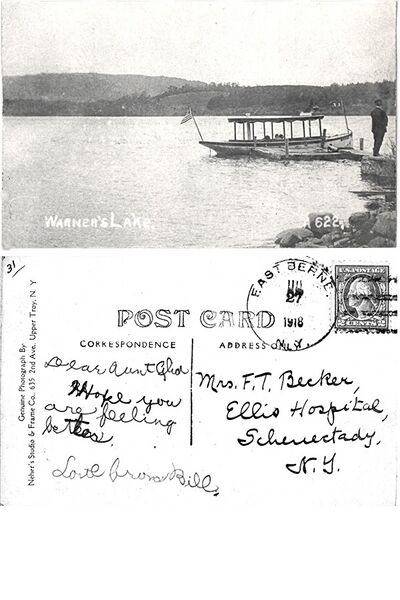 WARNER'S LAKE
622
31
Genuine Photograph By
Neher's Studio & Frame Co. 635 2nd Ave. Upper Troy, N. Y
POST CARD
CORRESPONDENCE
ADDRESS
EAST BERNE.
27
1918
N.Y.
U.S. POSTAGE
2 CENTS 2
Dear Aunt
Hope you
are feeling
better.
Love from Bill.
Mrs. F.T. Becker,
Ellis Hospital,
Schenectady,
N.Y.